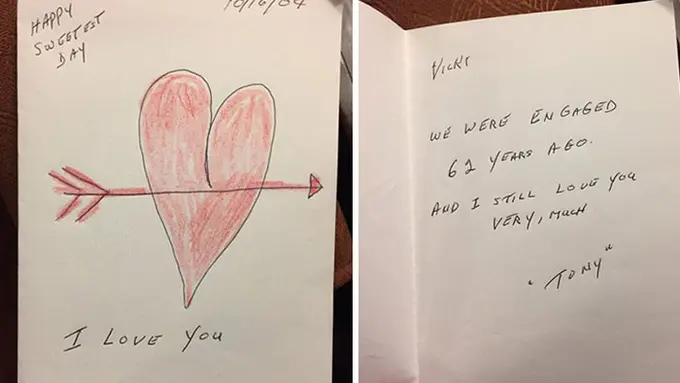 HAPPY
SWEETEST
DAY
10/16/04
I LOVE YOU
VICKI
WE WERE ENGAGED
62 YEARS AGO.
AND I STILL LOVE YOU
VERY, MUCH
"TONY"